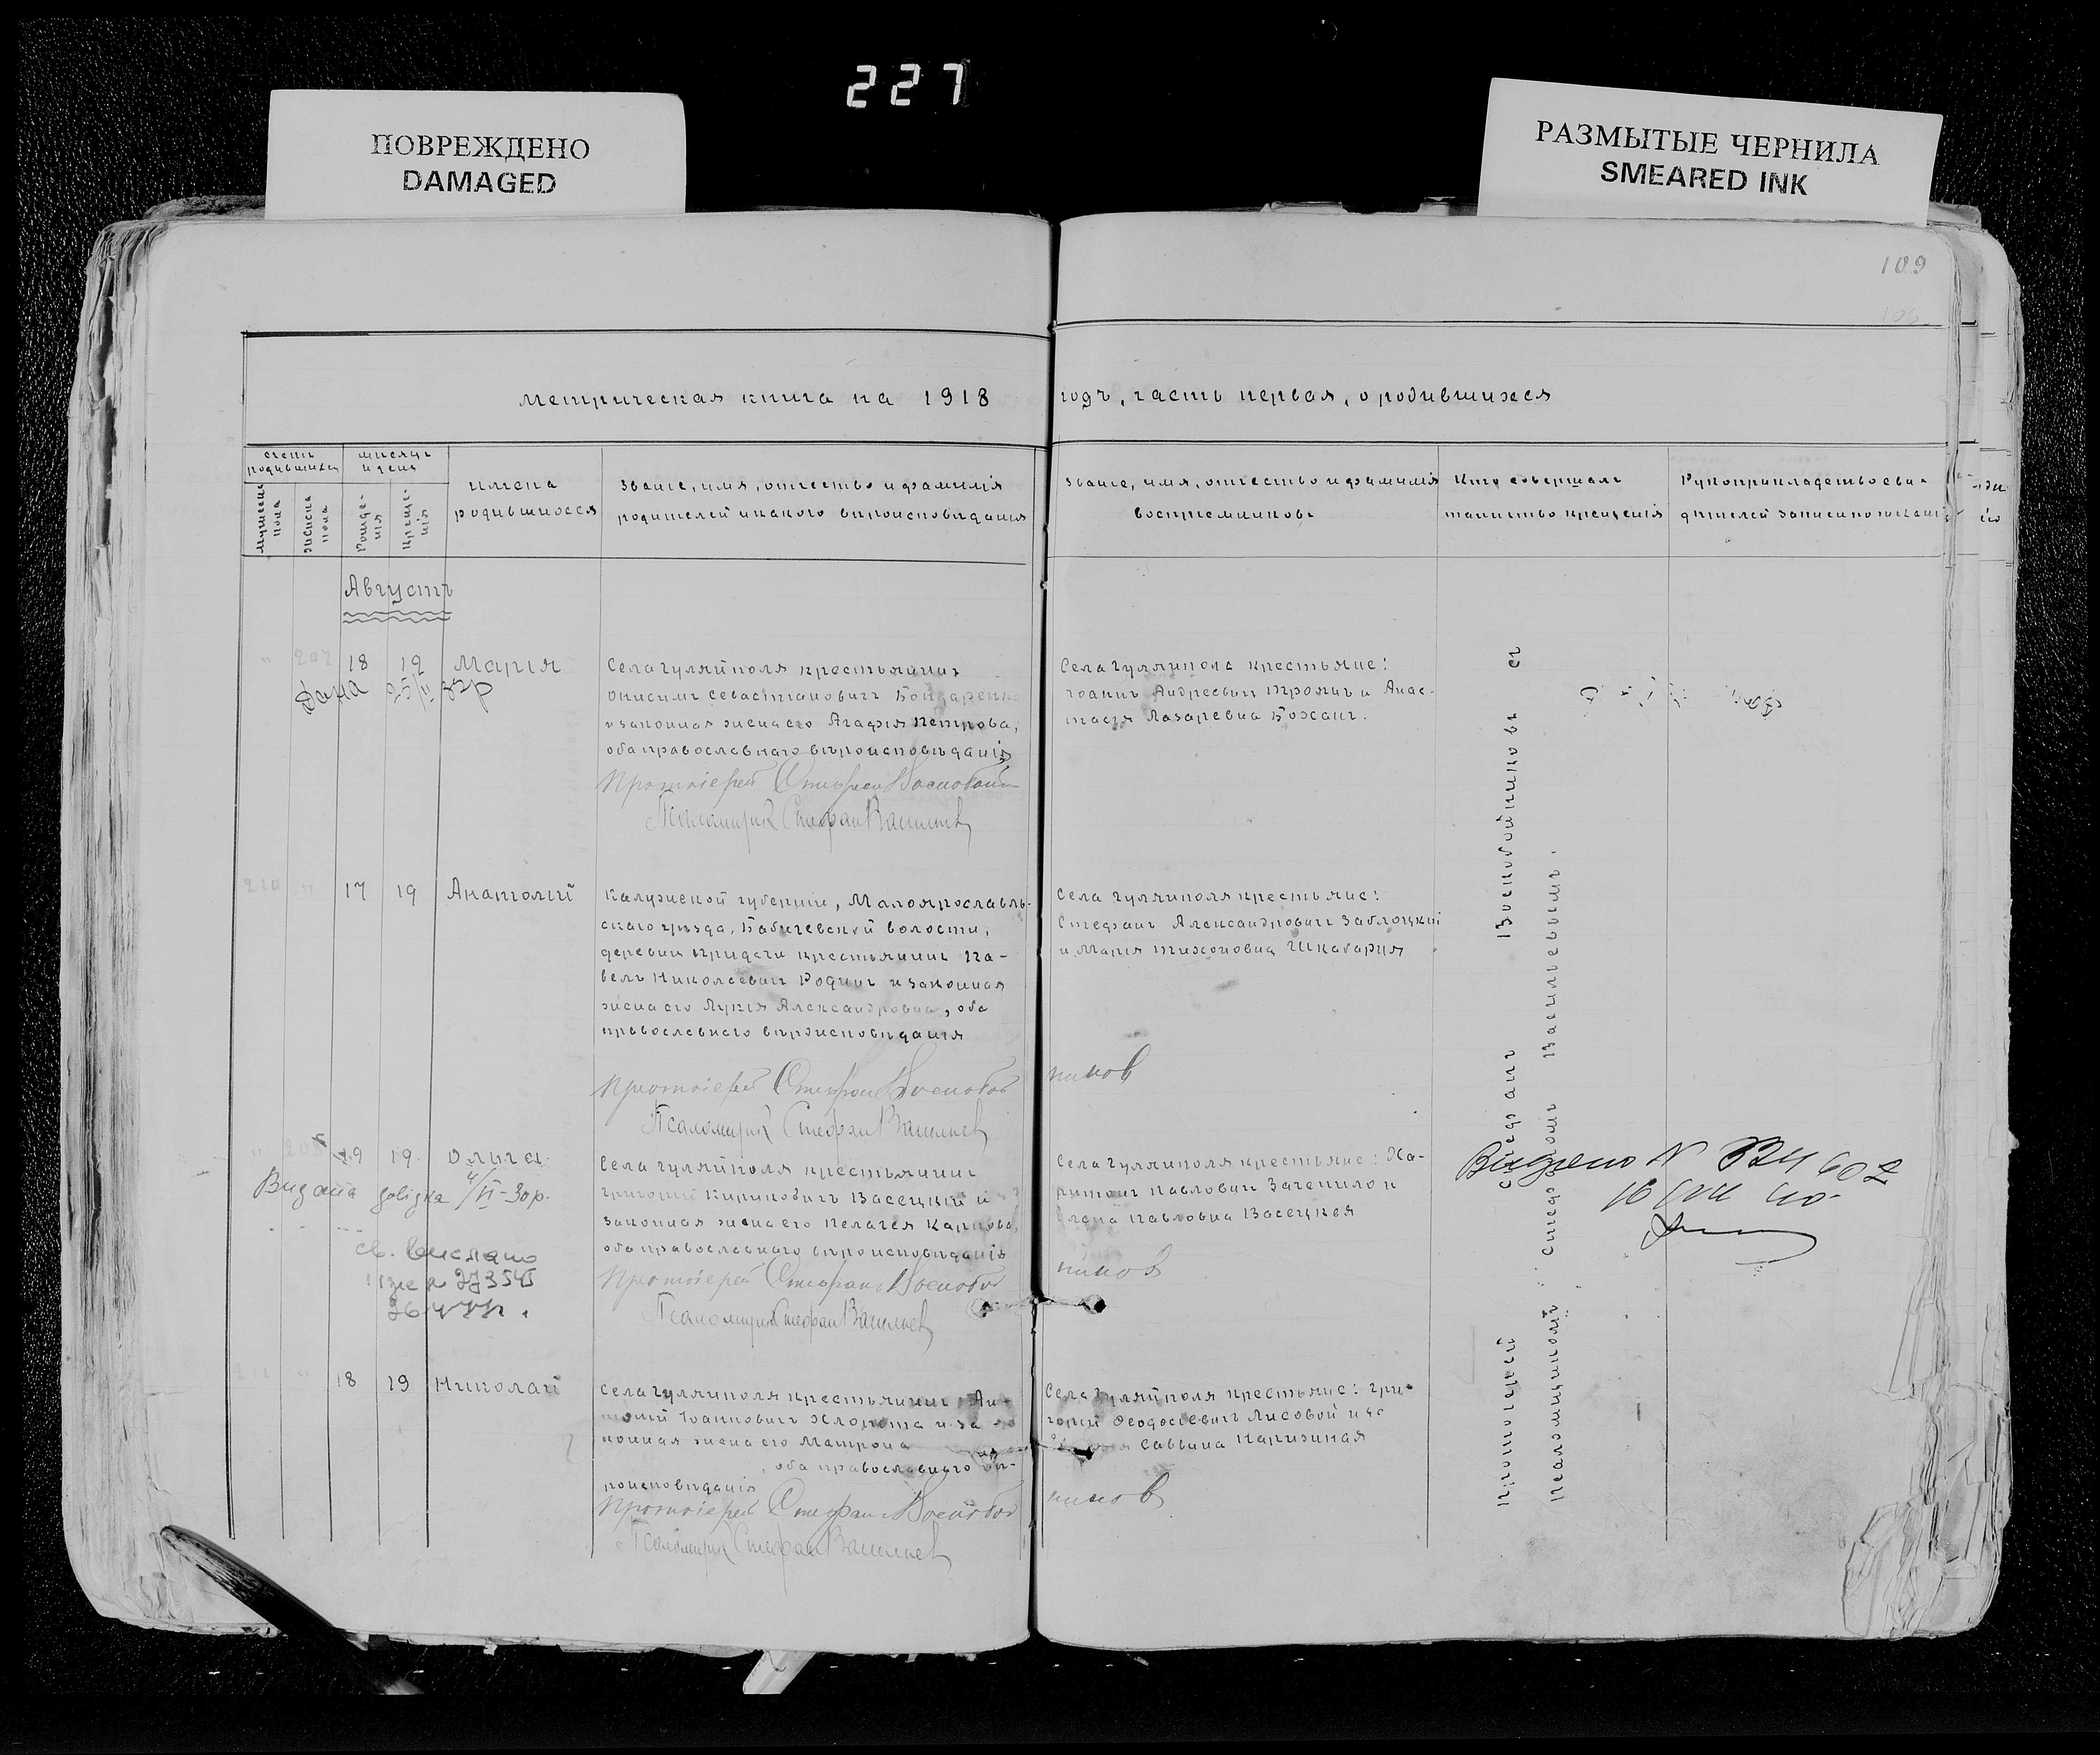 227
ПОВРЕЖДЕНО
DAMAGED
РАЗМЫТЫЕ ЧЕРНИЛА
SMEARED INK
109
106
Метрическая книга на 1918
годъ, часть первая, о родившихся
Счетъ
родившихся
Мѣсяцъ
и день
Мужеска
пола
Женска
пола
Рожде-
нія
Креще-
нія
Имена
родившихся
Званіе, имя, отчество и фамилія
родителей и какого вѣроисповѣданія
Званіе, имя, отчество и фамилія
воспріемниковъ
Кто совершалъ
таинство крещенія
Рукоприкладство сви-
дѣтелей записи по желанію
Августъ
" 207 18 19 Марія
Дана 25/II 32р
Села Гуляйполя крестьянинъ
Онисимъ Севастіановичъ Бондаренко
и законная жена его Агафія Петрова,
оба православнаго вѣроисповѣданія
Протоіерей Стефан Воскобой
Псаломщик Стефан Васильев
Села Гуляйполя крестьяне:
Іоаннъ Андреевичъ Трояна и Анас-
тасія Лазаревна Божанъ.
210 " 17 19 Анатолій
Калужской губерніи, Малоярославль-
скаго уѣзда, Бабичевской волости,
деревни Придачи крестьянинъ Па-
велъ Николаевичъ Родинъ и законная
жена его Лукія Александровна, оба
православнаго вѣроисповѣданія
Протоіерей Стефан Воскобой
ников
Псаломщик Стефан Васильев
Села Гуляйполя крестьяне:
Стефанъ Александровичъ Заблоцкій
и Марія Тихоновна Шкабарня
" 208 19 19 Ольга
Видана довідка 4/VI-30р.
св. выслано
273545
Села Гуляйполя крестьянинъ
Григорій Кириковичъ Васецкій и
законная жена его Пелагея Карпова,
оба православнаго вѣроисповѣданія
Протоіерей Стефанъ Воскобой
ников
Псаломщик Стефан Васильев
Села Гуляйполя крестьяне: Ха-
ритонъ Павловичъ Зачепило и
Елена Павловна Васецкая
211 " 18 19 Николай
Села Гуляйполя крестьянинъ Ан-
тоній Іоанновичъ Хлопота и за-
конная жена его Матрона
, оба православнаго вѣ-
роисповѣданія
Протоіерей Стефан Воскобой
ников
Псаломщик Стефан Васильев
Села Гуляйполя крестьяне: Гри-
горій Феодосіевичъ Лисовой и
Саввина Парижная
Протоіерей Стефанъ Воскобойниковъ съ
псаломщикомъ Стефаномъ Васильевымъ.
Видано №